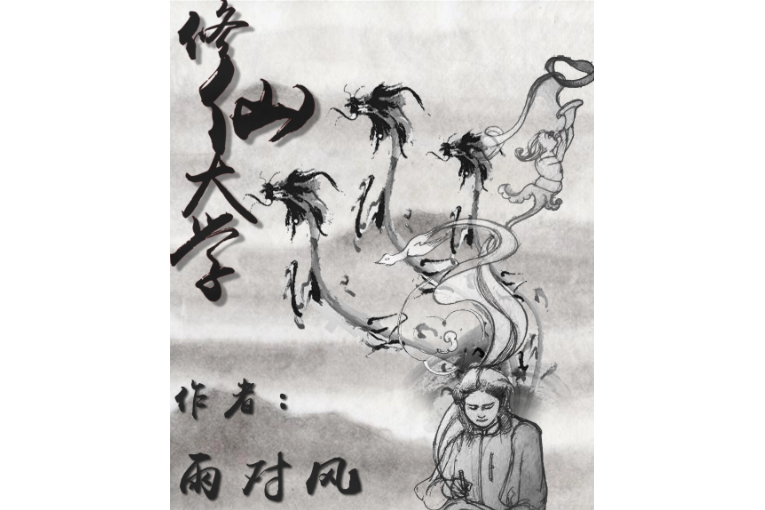 修仙大学
作者：
雨对风